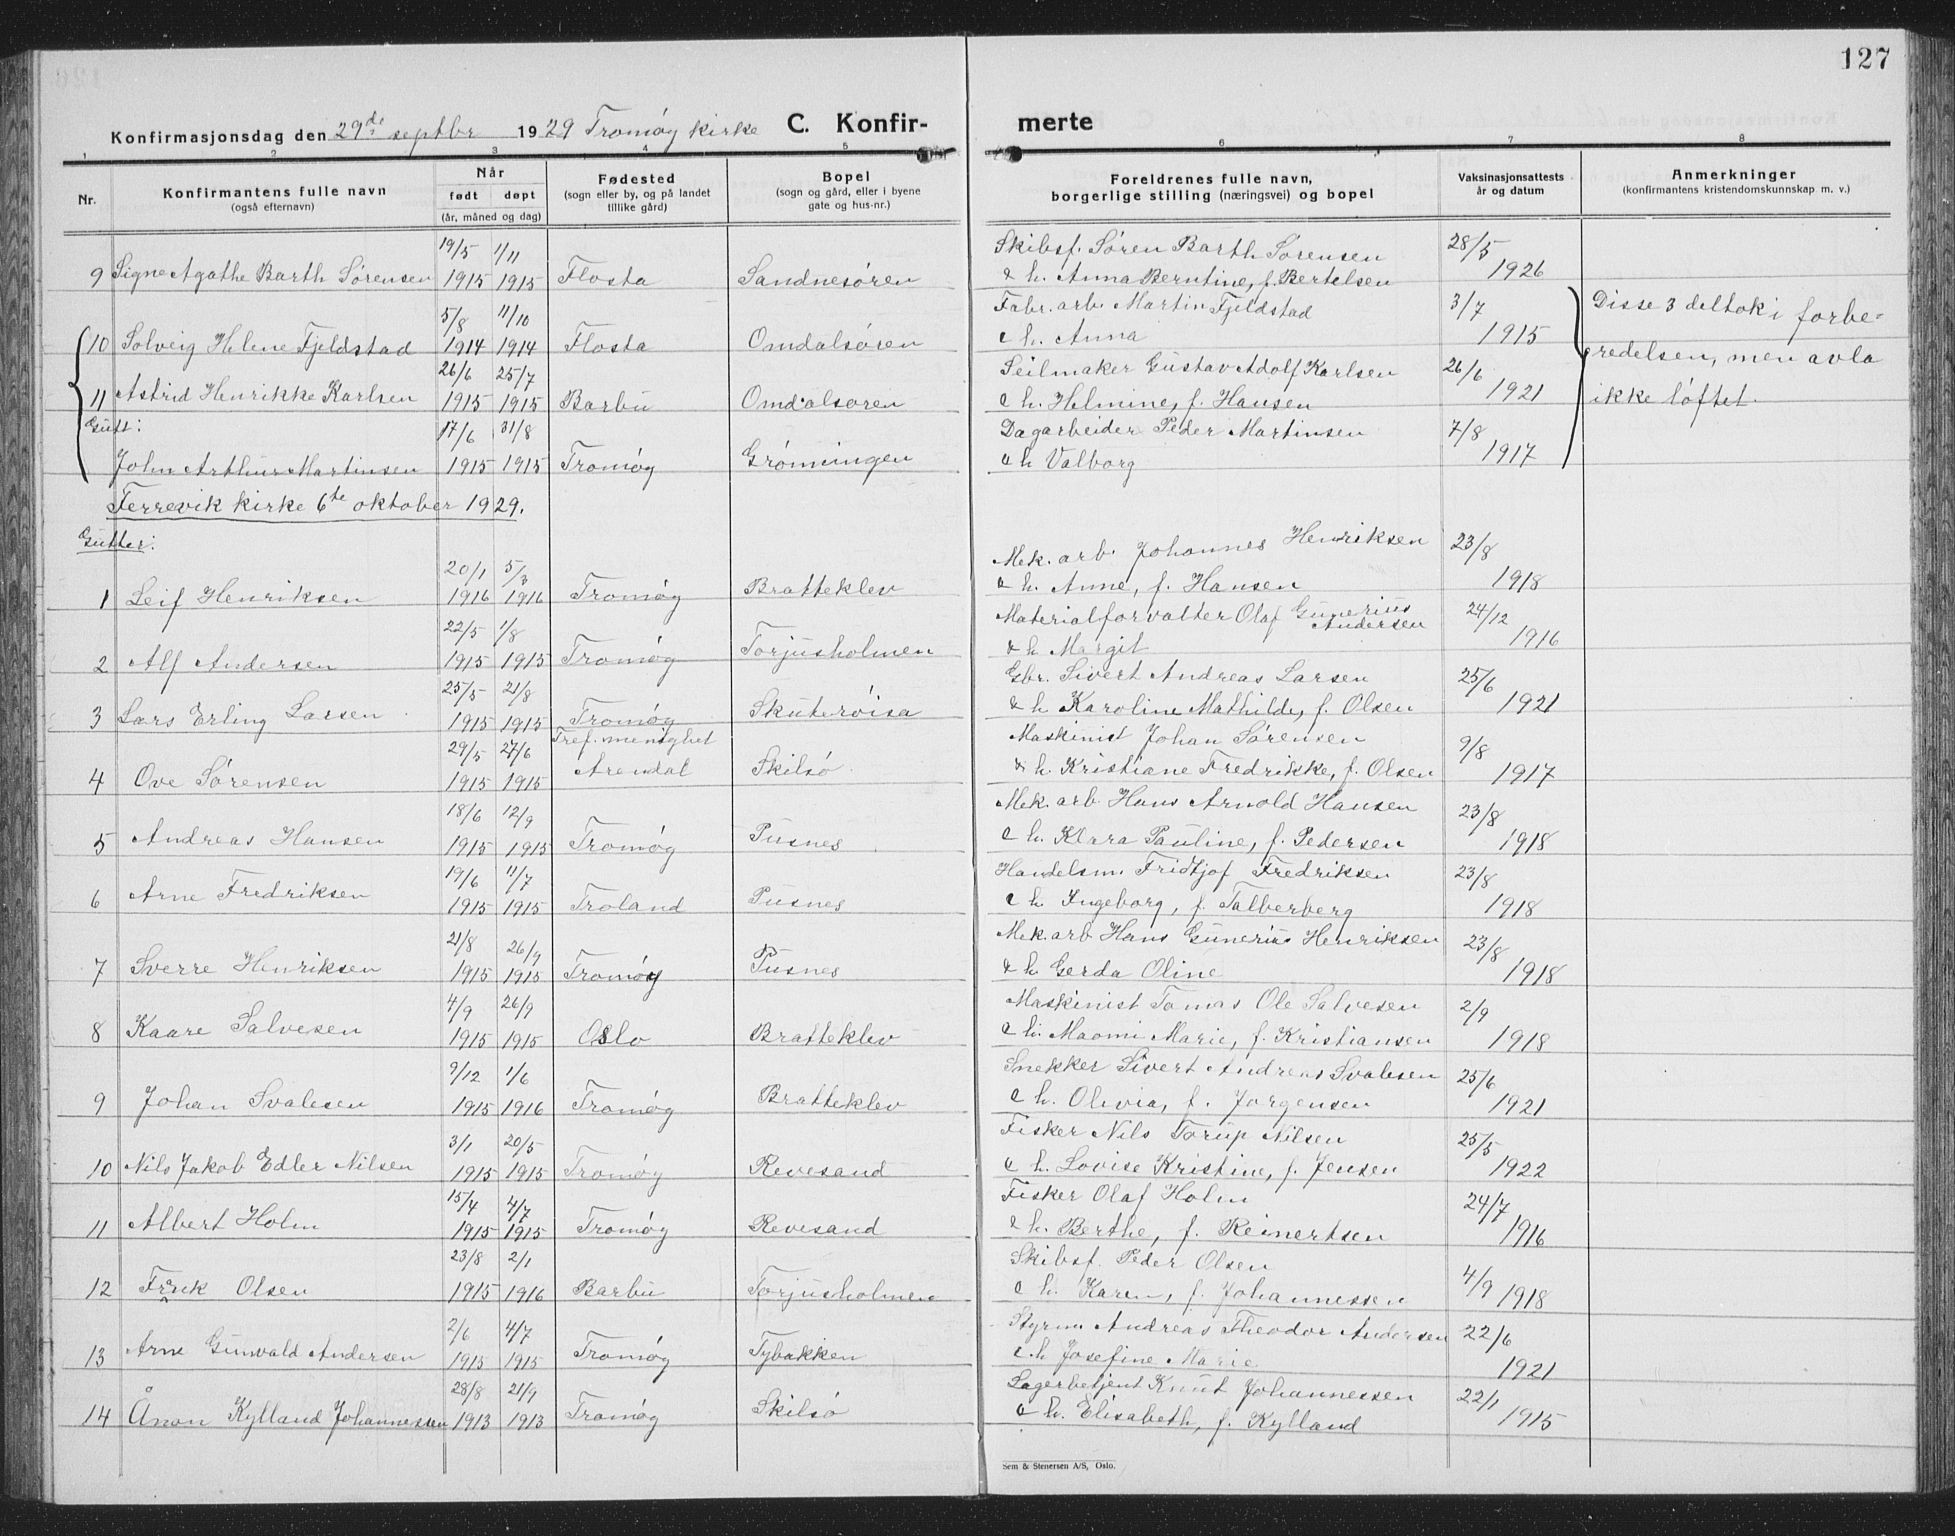 127
Konfirmasjonsdag den 29de septbr 1929 Tromøy kirke C. Konfir-merte
1 2 3 4 5 6 7 8
Nr.
Konfirmantens fulle navn
(også efternavn)
Når
født døpt
(år, måned og dag)
Fødested
(sogn eller by, og på landet
tillike gård)
Bopel
(sogn og gård, eller i byene
gate og hus-nr.)
Foreldrenes fulle navn,
borgerlige stilling (næringsvei) og bopel
Vaksinasjonsattests
år og datum
Anmerkninger
(konfirmantens kristendomskunnskap m. v.)
19/5 1/11 Skibsf. Søren Barth Sørensen 28/5
9 Signe Agathe Barth Sørensen 1915 1915 Flosta Sandnesøren & h. Anna Berntine, f. Bertelsen 1926
5/8 11/10 Fabr. arb. Martin Fjeldstad 3/7 Disse 3 deltok i forbe-
10 Solveig Helene Fjeldstad 1914 1914 Flosta Omdalsøren & h. Anna 1915 redelsen, men avla
26/6 25/7 Seilmaker Gustav Adolf Karlsen 26/6
11 Astrid Henrikke Karlsen 1915 1915 Barbu Omdalsøren & h. Helmine, f. Hansen 1921 ikke løftet.
Gutt: 17/6 31/8 Dagarbeider Peder Martinsen 7/8
John Arthur Martinsen 1915 1915 Tromøy Grømningen & h. Valborg 1917
Færrevik kirke 6te oktober 1929.
Gutter:
20/1 5/3 Mek. arb. Johannes Henriksen 23/8
1 Leif Henriksen 1916 1916 Tromøy Bratteklev & h. Anne, f. Hansen 1918
22/5 1/8 Materialforvalter Olaf Gunerius Andersen 24/12
2 Alf Andersen 1915 1915 Tromøy Torjusholmen & h. Margit 1916
25/5 21/8 Gbr. Sivert Andreas Larsen 25/6
3 Lars Erling Larsen 1915 1915 Tromøy Skutervisa & h. Karoline Mathilde, f. Olsen 1921
29/5 27/6 Tref. menighet Maskinist Johan Sørensen 9/8
4 Ove Sørensen 1915 1915 Arendal Skilsø & h. Kristiane Fredrikke, f. Olsen 1917
18/6 12/9 Mek. arb. Hans Arnold Hansen 23/8
5 Andreas Hansen 1915 1915 Tromøy Pusnes & h. Klara Pauline, f. Pedersen 1918
19/6 11/7 Handelsm. Fridtjof Fredriksen 23/8
6 Arne Fredriksen 1915 1915 Froland Pusnes & h. Ingeborg, f. Talberberg 1918
21/8 26/9 Mek. arb Hans Gunerius Henriksen 23/8
7 Sverre Henriksen 1915 1915 Tromøy Pusnes & h. Gerda Oline 1918
4/9 26/9 Maskinist Tomas Ole Salvesen 2/9
8 Kaare Salvesen 1915 1915 Oslo Bratteklev & h. Maomi Marie, f. Kristiansen 1918
9/12 1/6 Snekker Sivert Andreas Svalesen 25/6
9 Johan Svalesen 1915 1916 Tromøy Bratteklev & h. Olivia, f. Jørgensen 1921
3/1 20/5 Fisker Nils Torup Nilsen 25/5
10 Nils Jakob Edler Nilsen 1915 1915 Tromøy Revesand & h. Lovise Kristine, f. Jensen 1922
15/4 4/7 Fisker Olaf Holm 24/7
11 Albert Holm 1915 1915 Tromøy Revesand & h. Berthe, f. Reinertsen 1916
23/8 2/1 Skibsf. Peder Olsen 4/9
12 Olsen 1915 1916 Barbu Torjusholmen & h. Karen, f. Johannessen 1918
2/6 4/7 Styrm. Andreas Theodor Andersen 22/6
13 Arne Gunvald Andersen 1915 1915 Tromøy Tybakken & h. Josefine Marie 1921
28/8 21/9 Lagerbetjent Knut Johannessen 22/1
14 Ånon Kylland Johannessen 1913 1913 Tromøy Skilsø & h. Elisabeth, f. Kylland 1915
Sem & Stenersen A/S, Oslo.